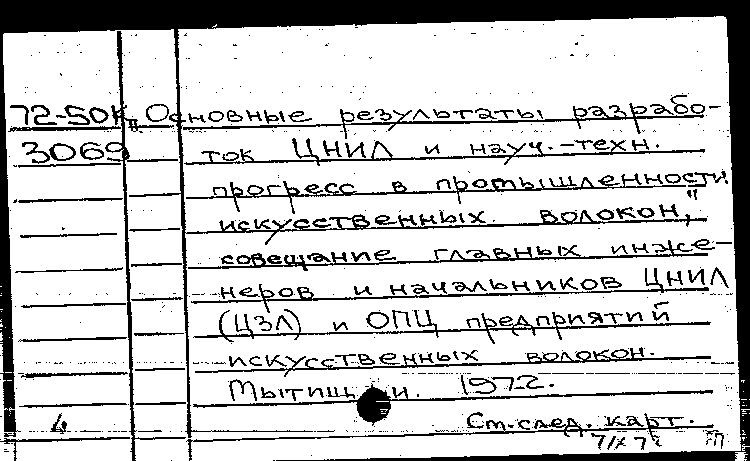 72-50К „Основные результаты разрабо-
3069 ток ЦНИЛ и науч.-техн.
прогресс в промышленности
искусственных волокон,"
совещание главных инже-
неров и начальников ЦНИЛ
(ЦЗЛ) и ОПЦ предприятий
искусственных волокон.
Мытищи. 1972.
4 См. след. карт.